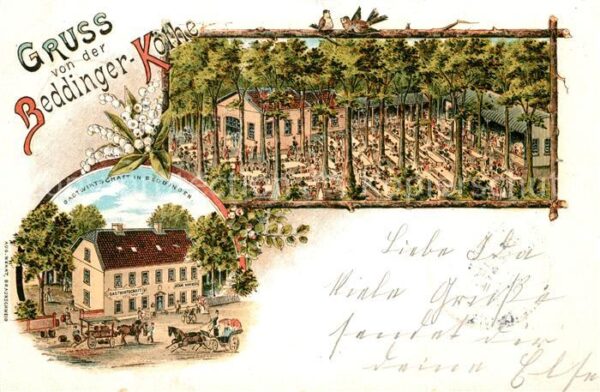 GRUSS
von der
Beddinger-Köthe
GASTWIRTSCHAFT IN BEDDINGEN
GASTWIRTSCHAFT
Liebe Ida
Viele Grüße
sendet dir
deine Else